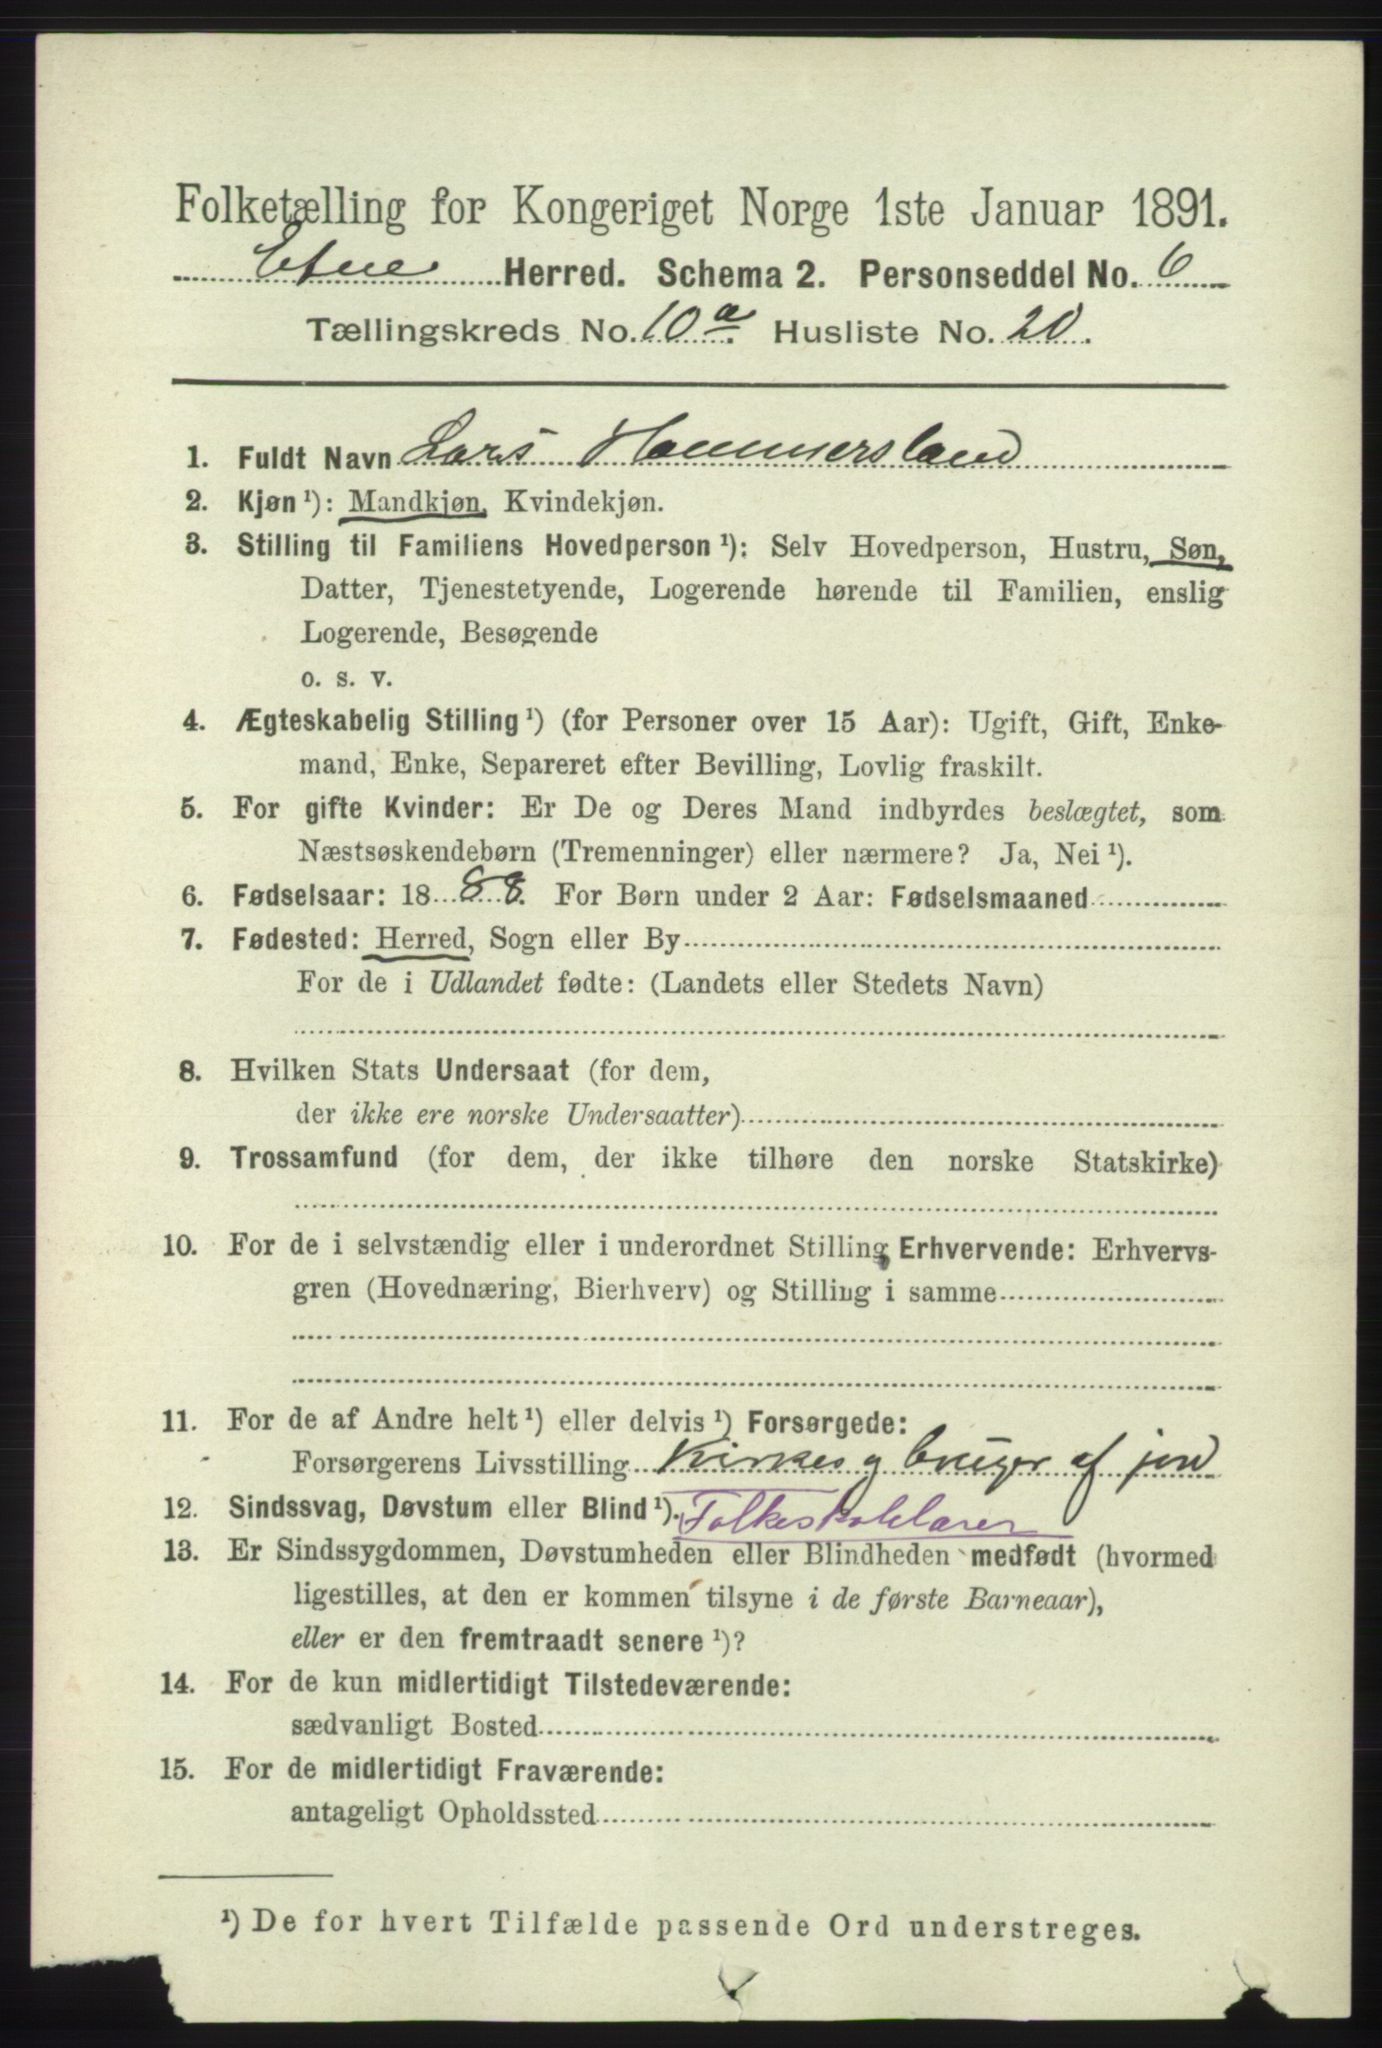 Folketælling for Kongeriget Norge 1ste Januar 1891.
Etne Herred. Schema 2. Personseddel No. 6
Tællingskreds No. 10 a. Husliste No. 20.
1. Fuldt Navn Lars Hammersland
2. Kjøn ¹): Mandkjøn, Kvindekjøn.
3. Stilling til Familiens Hovedperson ¹): Selv Hovedperson, Hustru, Søn,
Datter, Tjenestetyende, Logerende hørende til Familien, enslig
Logerende, Besøgende
o. s. v.
4. Ægteskabelig Stilling ¹) (for Personer over 15 Aar): Ugift, Gift, Enke-
mand, Enke, Separeret efter Bevilling, Lovlig fraskilt.
5. For gifte Kvinder: Er De og Deres Mand indbyrdes beslægtet, som
Næstsøskendebørn (Tremenninger) eller nærmere? Ja, Nei ¹).
6. Fødselsaar: 1888. For Børn under 2 Aar: Fødselsmaaned
7. Fødested: Herred, Sogn eller By
For de i Udlandet fødte: (Landets eller Stedets Navn)
8. Hvilken Stats Undersaat (for dem,
der ikke ere norske Undersaatter)
9. Trossamfund (for dem, der ikke tilhøre den norske Statskirke)
10. For de i selvstændig eller i underordnet Stilling Erhvervende: Erhvervs-
gren (Hovednæring, Bierhverv) og Stilling i samme
11. For de af Andre helt ¹) eller delvis ¹) Forsørgede:
Forsørgerens Livsstilling Kirkes g bruger af jord
12. Sindssvag, Døvstum eller Blind ¹). Folkeskolelærer
13. Er Sindssygdommen, Døvstumheden eller Blindheden medfødt (hvormed
ligestilles, at den er kommen tilsyne i de første Barneaar),
eller er den fremtraadt senere ¹)?
14. For de kun midlertidigt Tilstedeværende:
sædvanligt Bosted
15. For de midlertidigt Fraværende:
antageligt Opholdssted
¹) De for hvert Tilfælde passende Ord understreges.